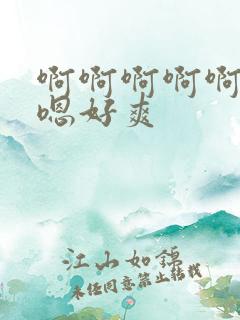 啊啊啊啊啊
嗯好爽
江山如锦
未经同意禁止转载